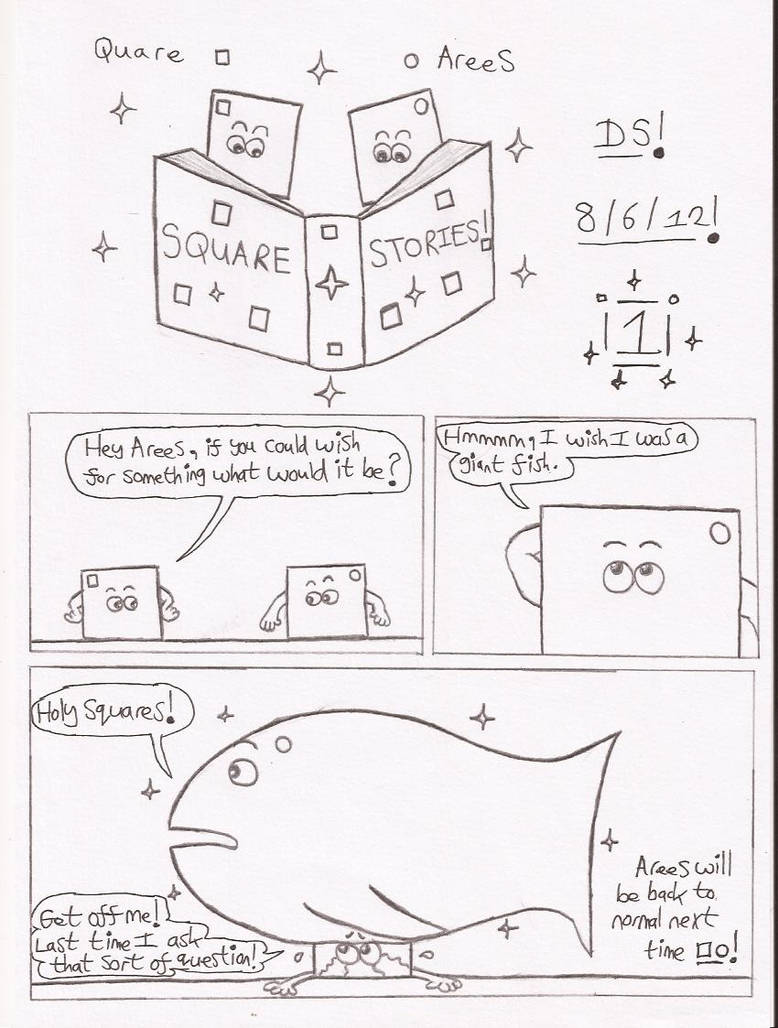 Quare
AreeS
DS!
8/6/12!
1
SQUARE
STORIES!
Hey AreeS, if you could wish
for something what would it be?
Hmmmm, I wish I was a
giant fish.
Holy Squares!
Get off me!
Last time I ask
that sort of question!
AreeS will
be back to
normal next
time □○!